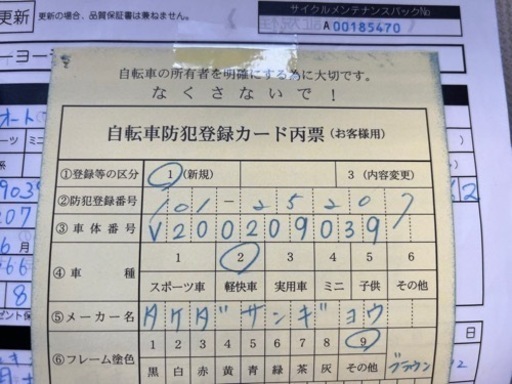 更新
更新の場合、品質保証書は兼ねません。
サイクルメンテナンスパックNo
A 00185470
自転車の所有者を明確にする為に大切です。
なくさないで！
自転車防犯登録カード丙票(お客様用)
①登録等の区分 1 (新規) 3 (内容変更)
②防犯登録番号 101-25207
③車体番号 V200209039
④車種 1 2 3 4 5 6
スポーツ車 軽快車 実用車 ミニ 子供 その他
⑤メーカー名 タケダサンギョウ
⑥フレーム塗色 1 2 3 4 5 6 7 8 9
黒 白 赤 銀 黄 青 緑 茶 灰 その他 ブラウン